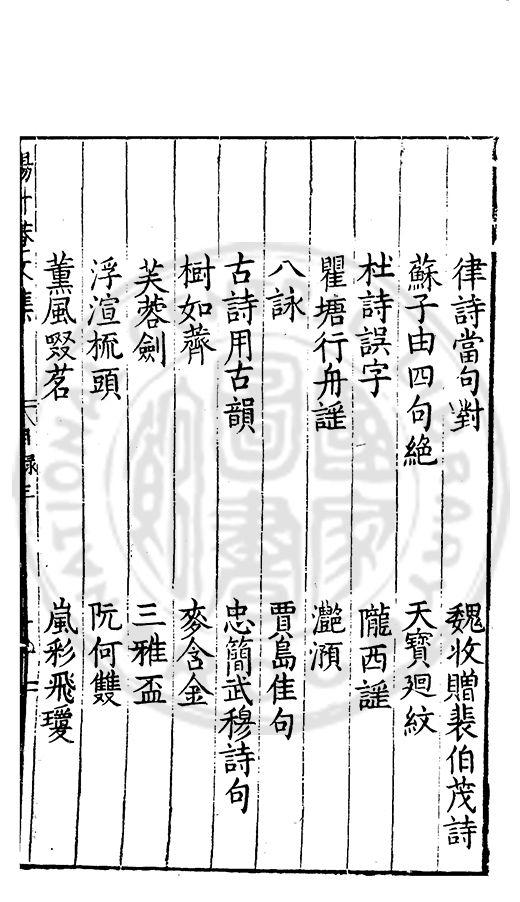 律詩當句對　魏收贈裴伯茂詩
蘇子由四句絶　天寶廻紋
杜詩誤字　隴西謡
瞿塘行舟謡　灔澦
八詠　賈島佳句
古詩用古韻　忠簡武穆詩句
樹如薺　麥含金
芙蓉劍　三雅盃
浮渲梳頭　阮何雙
薰風啜茗　嵐彩飛瓊